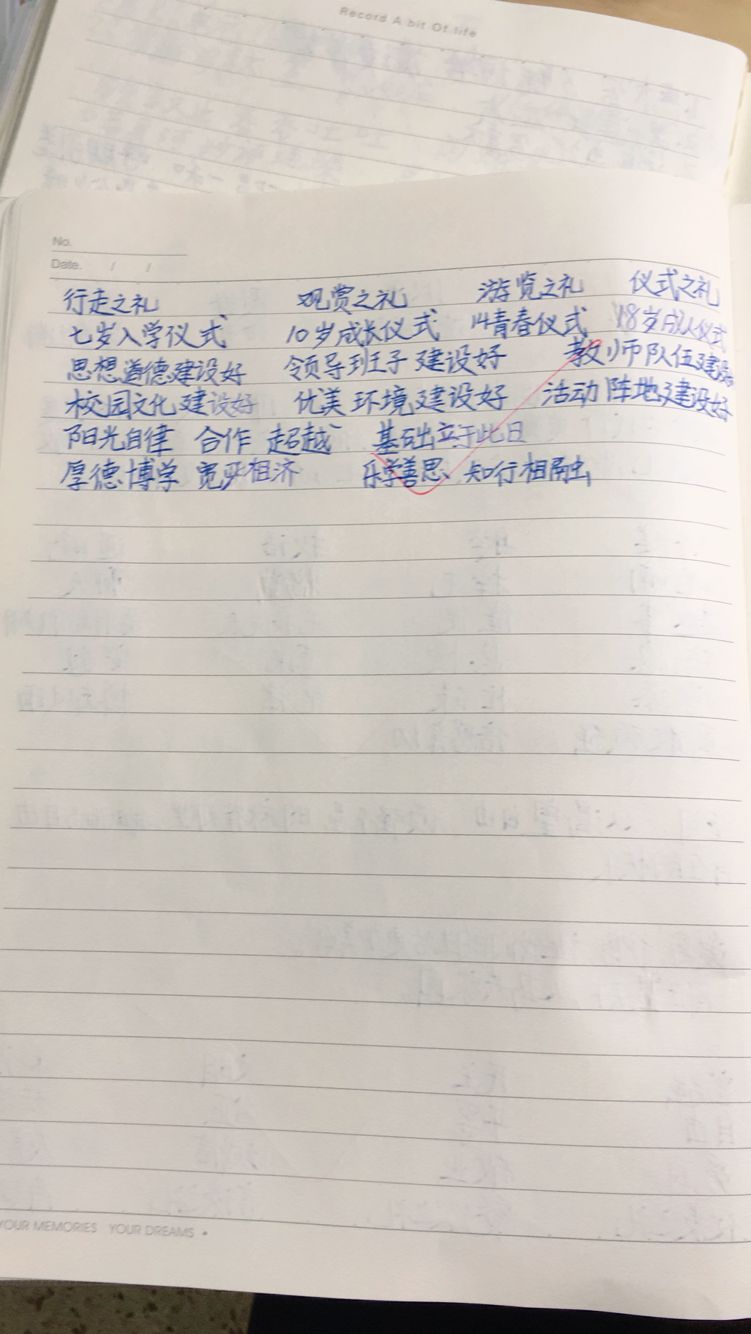 Record A bit Of life
No.
Date. / /
行走之礼 观赏之礼 游览之礼 仪式之礼
七岁入学仪式 10岁成长仪式 14青春仪式 18岁成人仪式
思想道德建设好 领导班子建设好 教师队伍建设
校园文化建设好 优美环境建设好 活动阵地建设好
阳光自律 合作 超越 基础立于此日
厚德博学 宽严相济 乐学善思、知行相融
YOUR MEMORIES YOUR DREAMS •